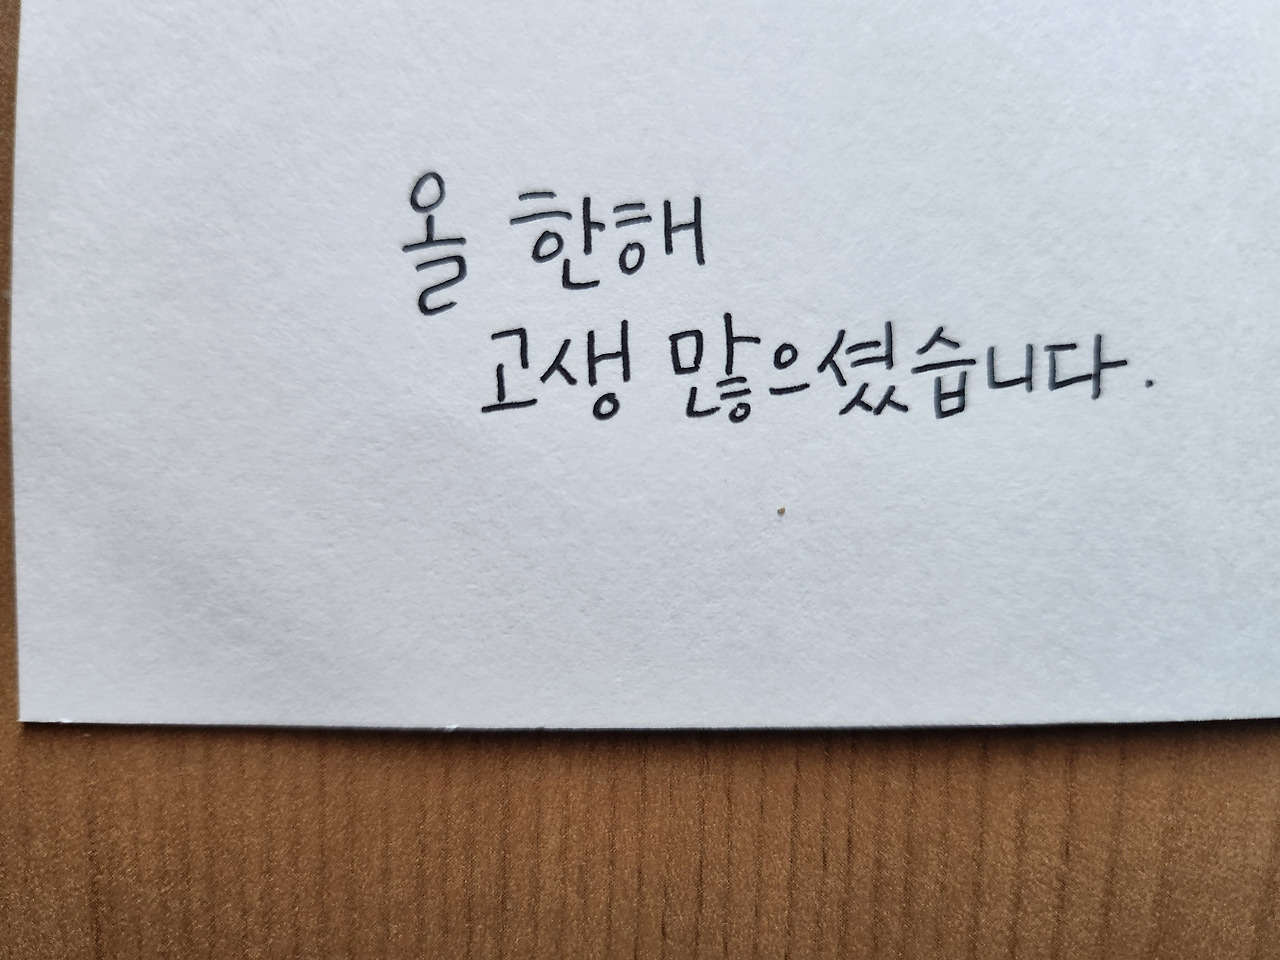 올 한해
고생 많으셨습니다.